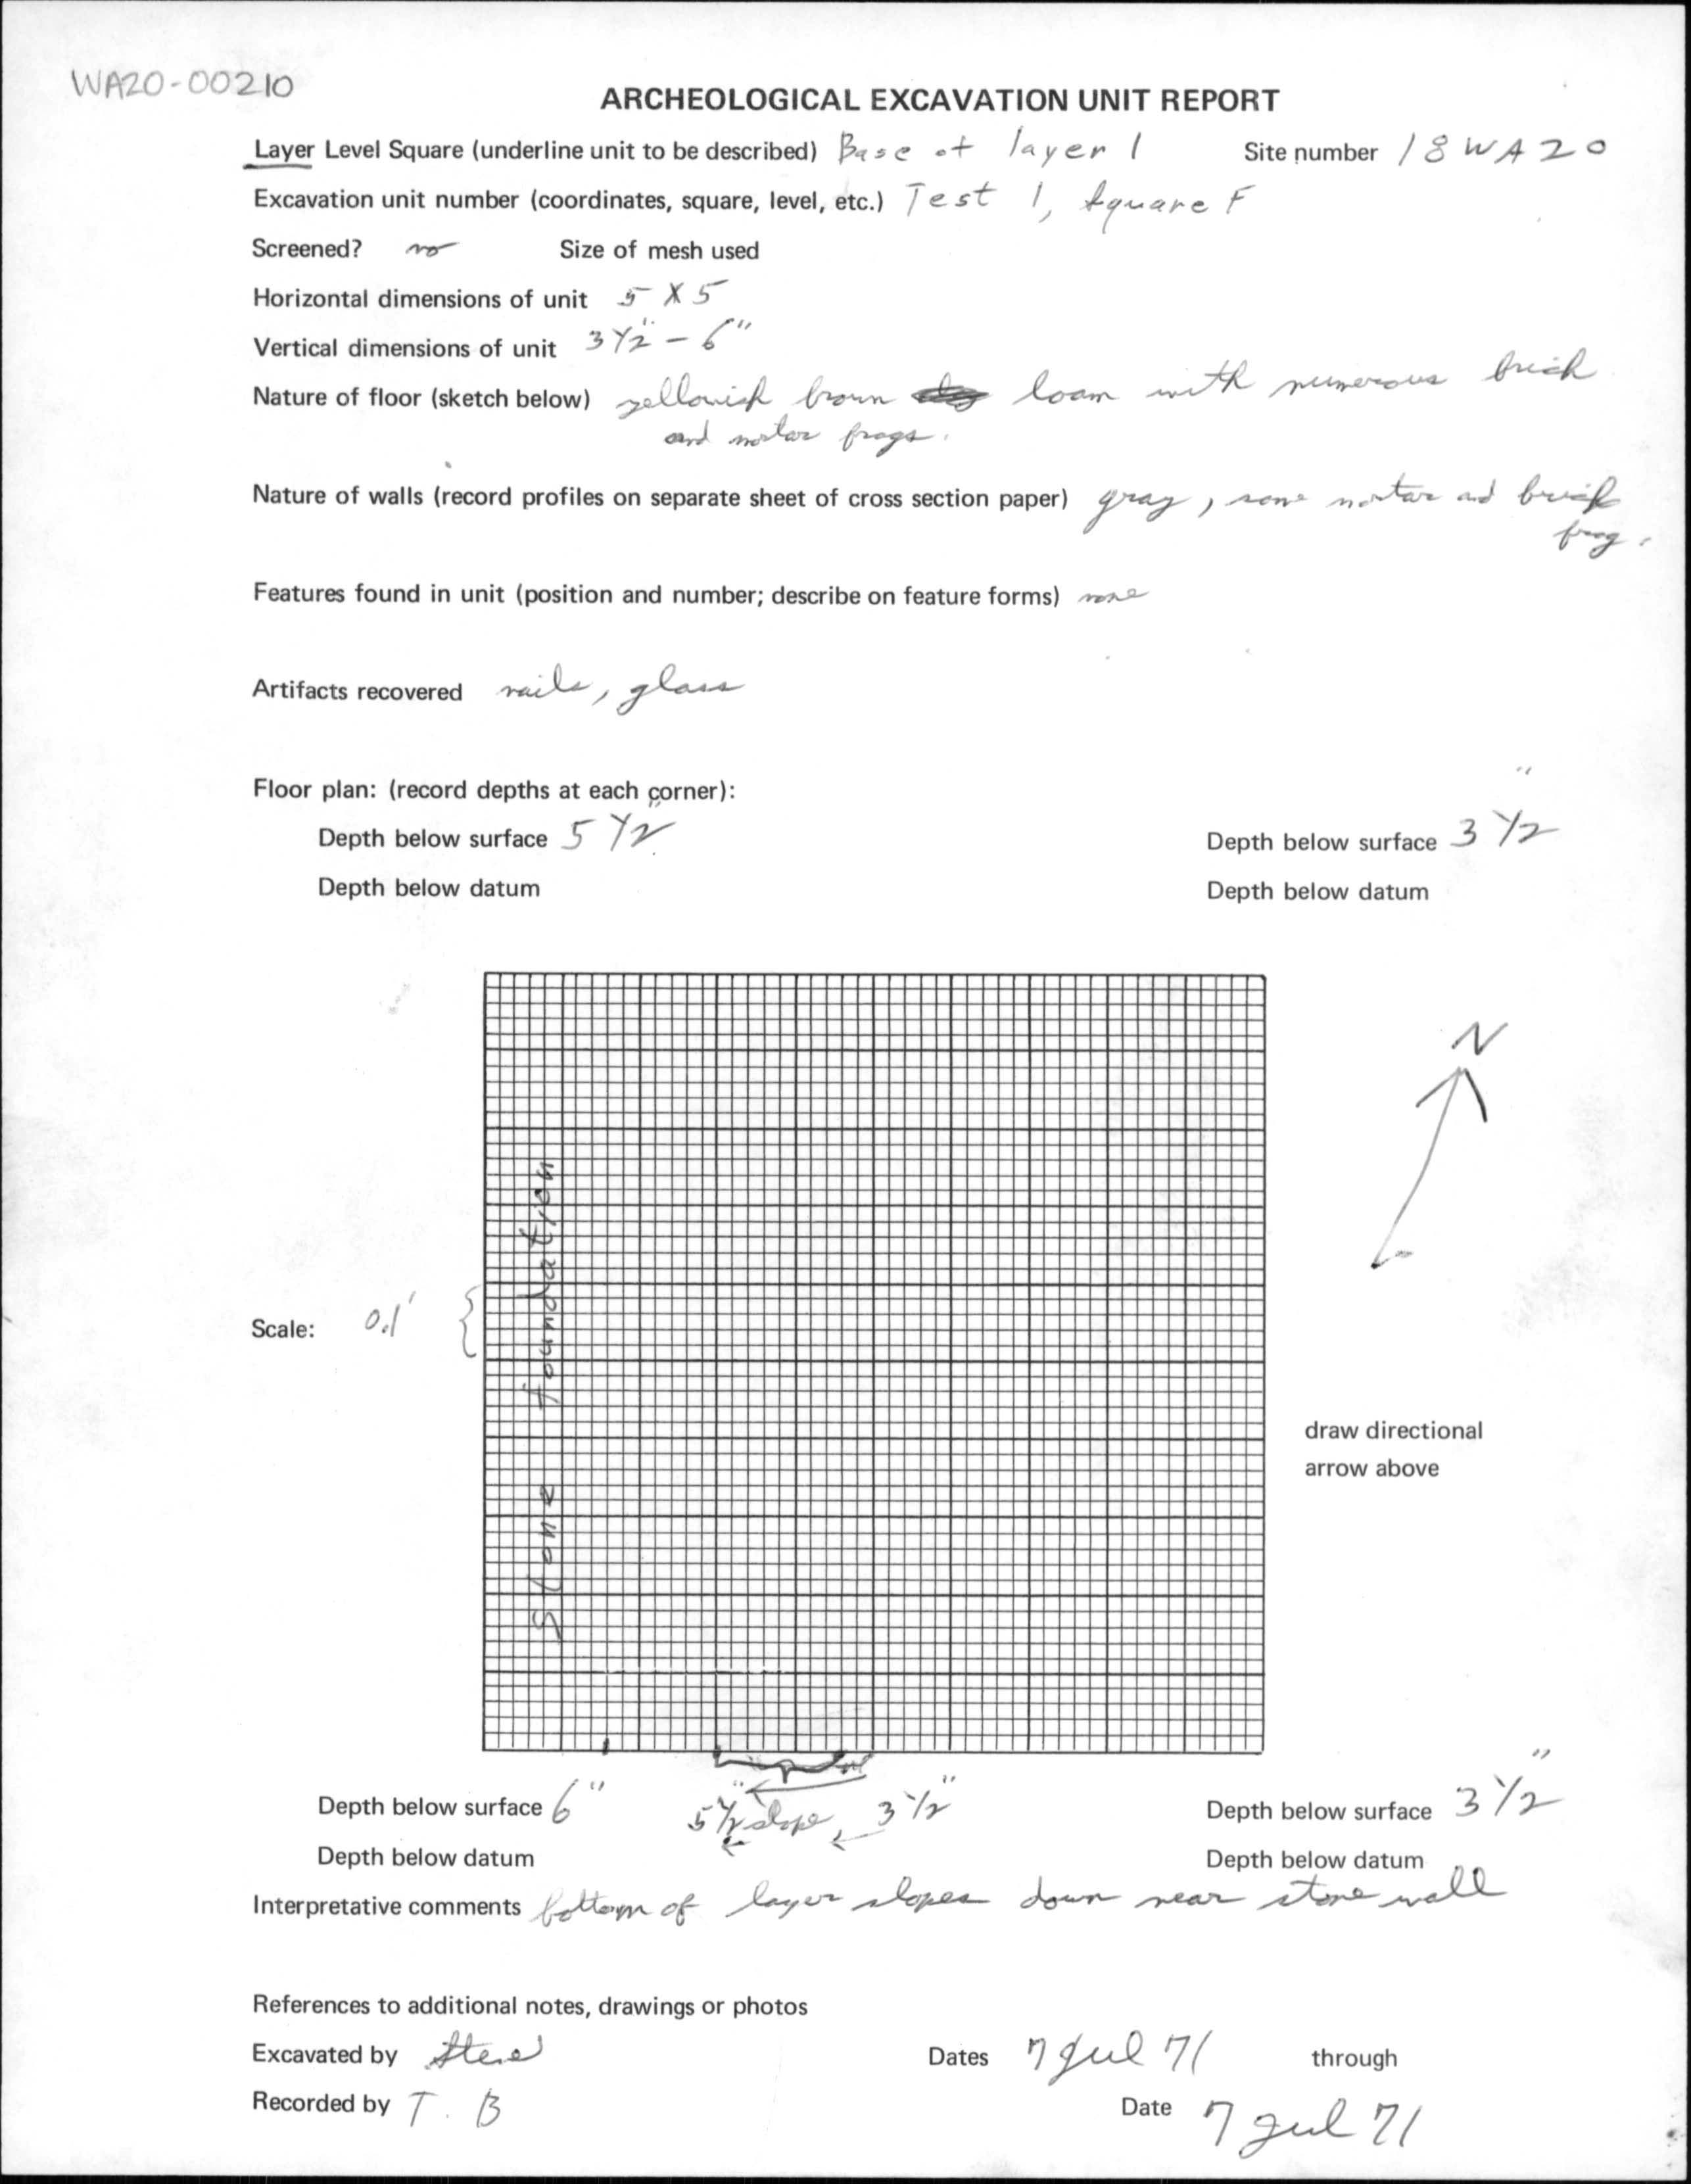 WA20-00210
ARCHEOLOGICAL EXCAVATION UNIT REPORT
Layer Level Square (underline unit to be described) Base of layer 1 Site number 18 WA 20
Excavation unit number (coordinates, square, level, etc.) Test 1, Square F
Screened? no Size of mesh used
Horizontal dimensions of unit 5 X 5
Vertical dimensions of unit 3 1/2" - 6"
Nature of floor (sketch below) yellowish brown loam with numerous brick
and mortar frags.
Nature of walls (record profiles on separate sheet of cross section paper) gray, some mortar and brick
frag.
Features found in unit (position and number; describe on feature forms) none
Artifacts recovered nails, glass
Floor plan: (record depths at each corner):
Depth below surface 5 1/2" Depth below surface 3 1/2"
Depth below datum Depth below datum
N
Stone foundation
Scale: 0.1'
draw directional
arrow above
Depth below surface 6" 5 1/2" slope 3 1/2" Depth below surface 3 1/2"
Depth below datum Depth below datum
Interpretative comments bottom of layer slopes down near stone wall
References to additional notes, drawings or photos
Excavated by Steve Dates 7 Jul 71 through
Recorded by T. B Date 7 Jul 71